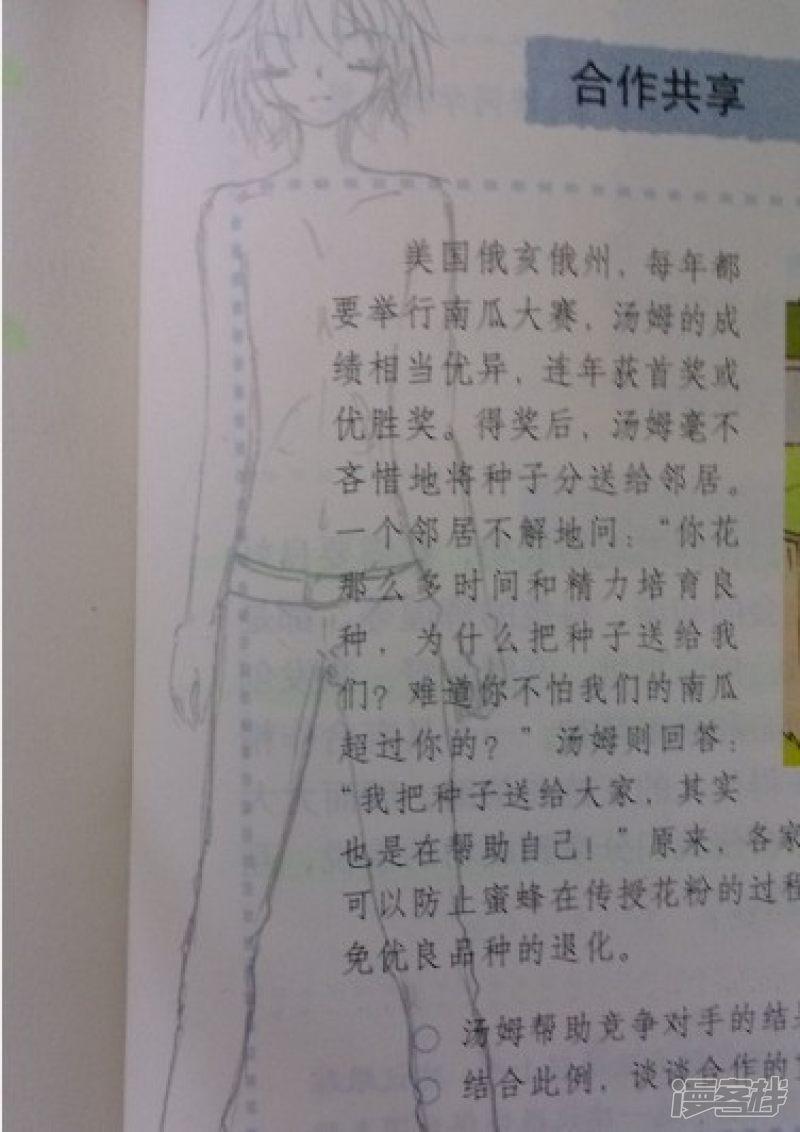 合作共享
美国俄亥俄州，每年都
要举行南瓜大赛，汤姆的成
绩相当优异，连年获首奖或
优胜奖。得奖后，汤姆毫不
吝惜地将种子分送给邻居。
一个邻居不解地问：“你花
那么多时间和精力培育良
种，为什么把种子送给我
们？难道你不怕我们的南瓜
超过你的？”汤姆则回答：
“我把种子送给大家，其实
也是在帮助自己！”原来，各家
可以防止蜜蜂在传授花粉的过程
免优良品种的退化。
汤姆帮助竞争对手的结
结合此例，谈谈合作的
漫客栈